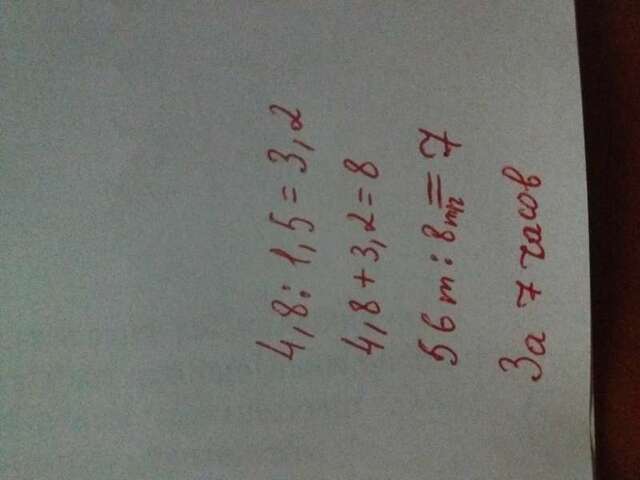 4,8 : 1,5 = 3,2
4,8 + 3,2 = 8
56 т : 8 = 7
За 7 часов